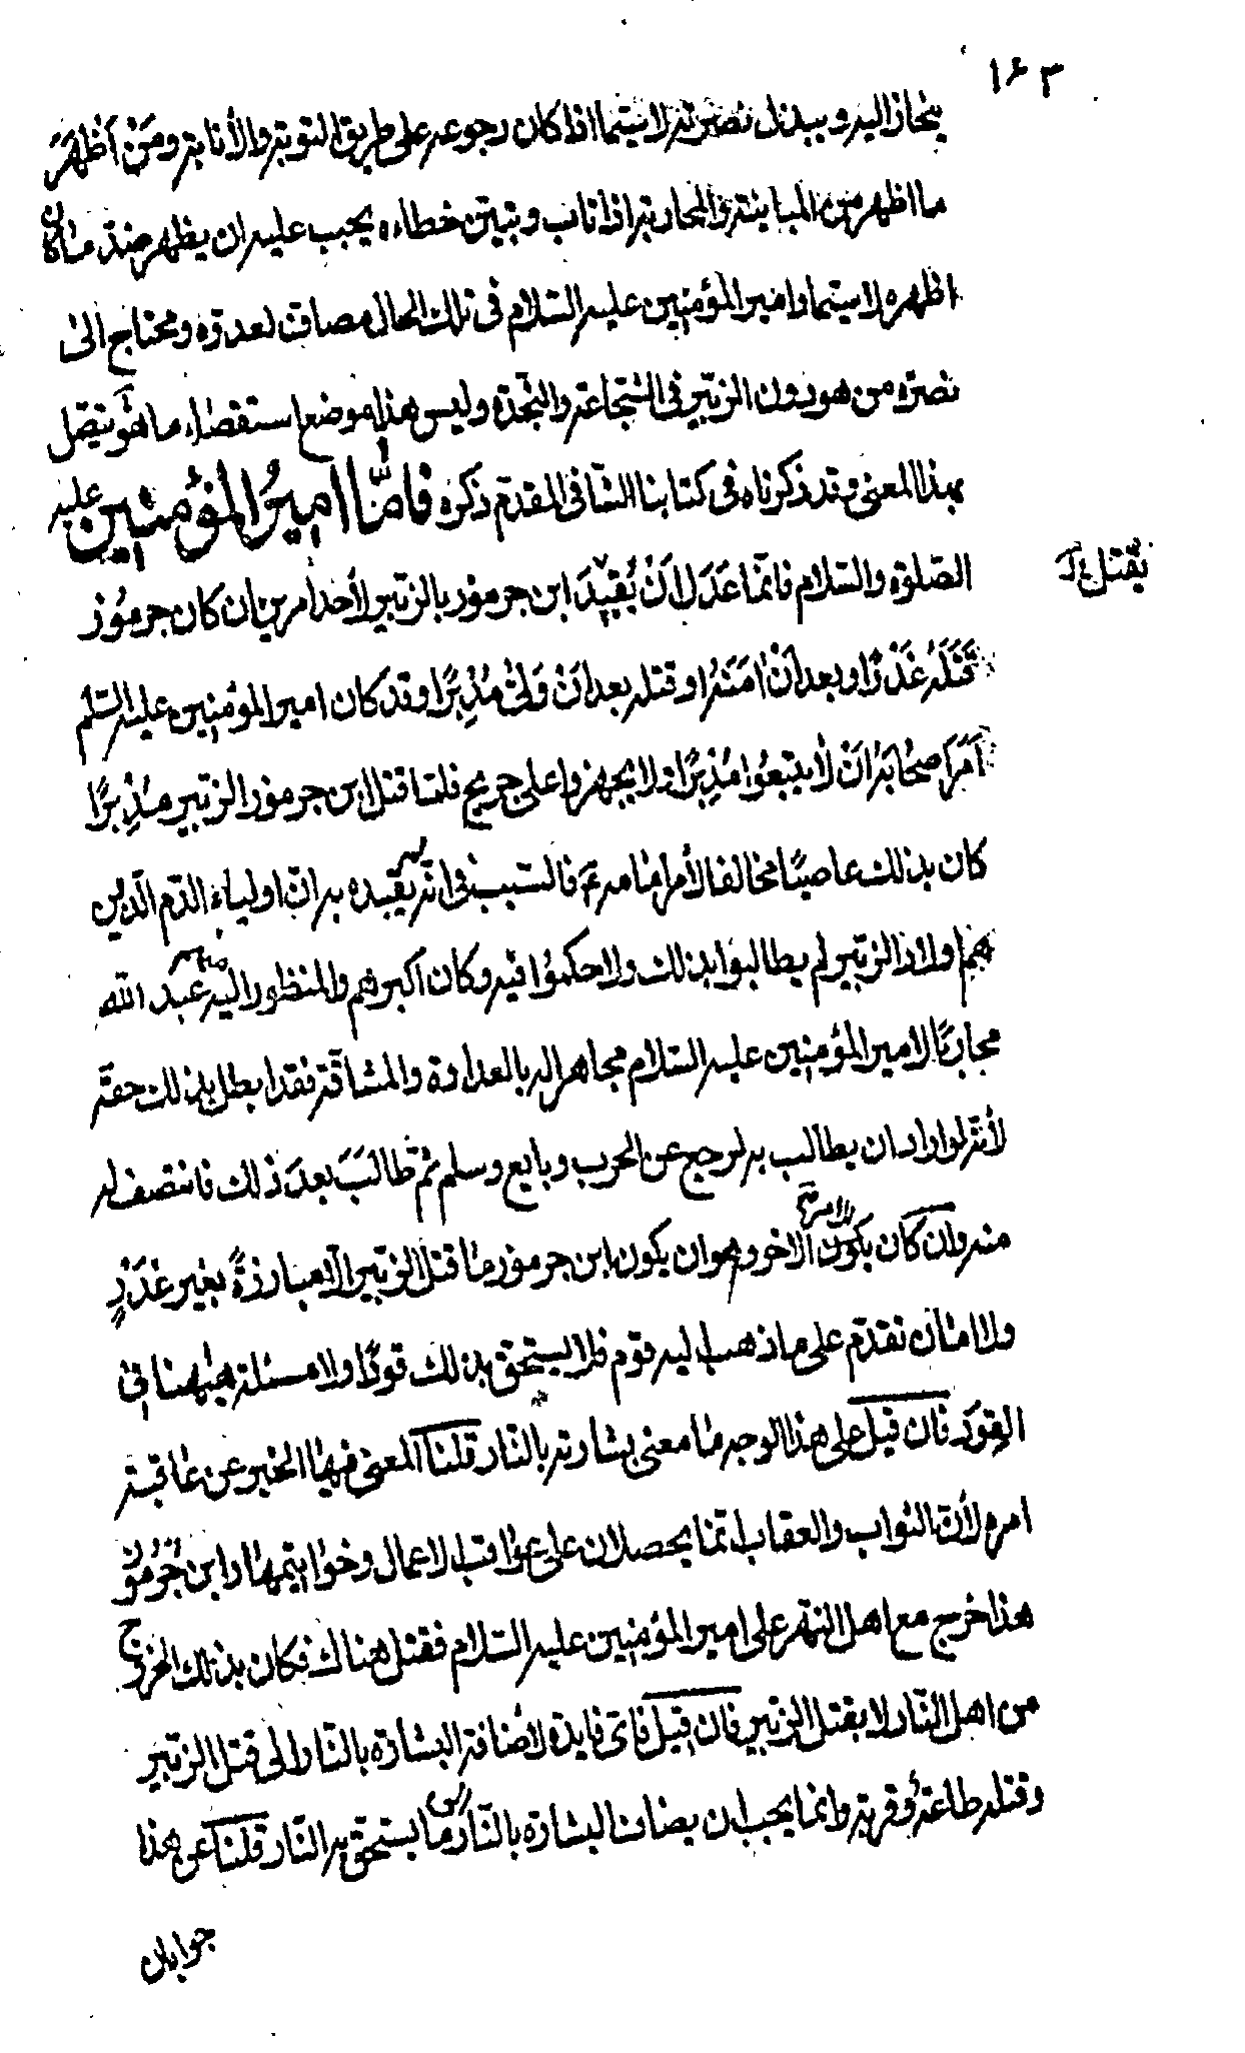 ١٦٣
ينحاز اليه ويبذل نصرته لا سيّما اذا كان رجوعه على طريق التوبة والأنابة ومَنْ أظهَرَ
ما اظهر من المباينة والمحاربة اذا تاب وتبيّن خطاءه يجب عليه ان يظهر ضدّ ما كان
اظهره لا سيّما وامير المؤمنين عليه السّلام فى تلك الحال مصافّ لعدوّه ومحتاج الى
نصرة من هو دون الزبّير فى الشّجاعة والنّجدة وليس هذا موضع استقصاء ما هو يتّصل
بهذا المعنى وقد ذكرناه فى كتابنا الشّافى المقدّم ذكره فامّا اميرُ المؤمنين عليه
الصّلوة والسّلام فانّما عَدَلَ لأنْ يُقيِدَ ابن جرموز بالزبّير لأحد امرين ان كان جرموز
يقتل
قَتَلَهُ غَدْرًا وبعد انْ امَنَهُ او قتله بعد انْ وَلىٰ مُدْبِرًا وقد كان امير المؤمنين عليه السّلم
اَمَرَ اصحٰابَهُ انْ لٰا يتبعُوا مُدْبِرًا ولا يجهزوا على جريح فلمّا قتل ابن جرموز الزبّير مُدْبِرًا
كان بذلك عاصيًا مخالفا لأمر امٰامه فالسّبب فى انّه لم يقيده به انّ اولياء الدّم الّذين
هم اولاد الزبّير لم يطالبوا بذلك ولا حكموا فيه وكان اكبرهم والمنظور اليه منهم عبد الله
محاربًا لامير المؤمنين عليه السّلام مجاهرا له بالعداوة والمشاقّة فقد ابطل بذلك حقّه
لأنّه لو اراد ان يطالب به لرجع عن الحرب وبايع وسلم ثم طالَبَ بعد ذلك فانتصف له
منه وان كان يكون الامر الاخر وهو ان يكون ابن جرموز مٰا قتل الزبّير الّا مبارزةً بغير غَدْرٍ
ولا امٰان تقدّم على ما ذهب اليه قوم فلا يستحق بذلك قودًا ولا مسئلة هيهنا فى
القود فان قيل على هذا الوجه مٰا معنى بشارته بالنّار قلنٰا المعنى فيهٰا الخبر عن عٰاقبة
امره لأنّ الثواب والعقاب انّمٰا يحصلان على عواقب الاعمال وخواتيمهٰا وابن جُرمُوز
هذا خرج مع اهل النّهر على امير المؤمنين عليه السّلام فقتل هناك فكان بذلك الخروج
من اهل النّار لا بقتل الزبّير فان قيل فاىّ فايدة لأضافة البشارة بالنّار الى قتل الزبّير
وقتله طاعة وقربة وانما يجب ان يضاف البشارة بالنّار الى ما يستحق به النّار قلنٰا عن هذا
جوابان